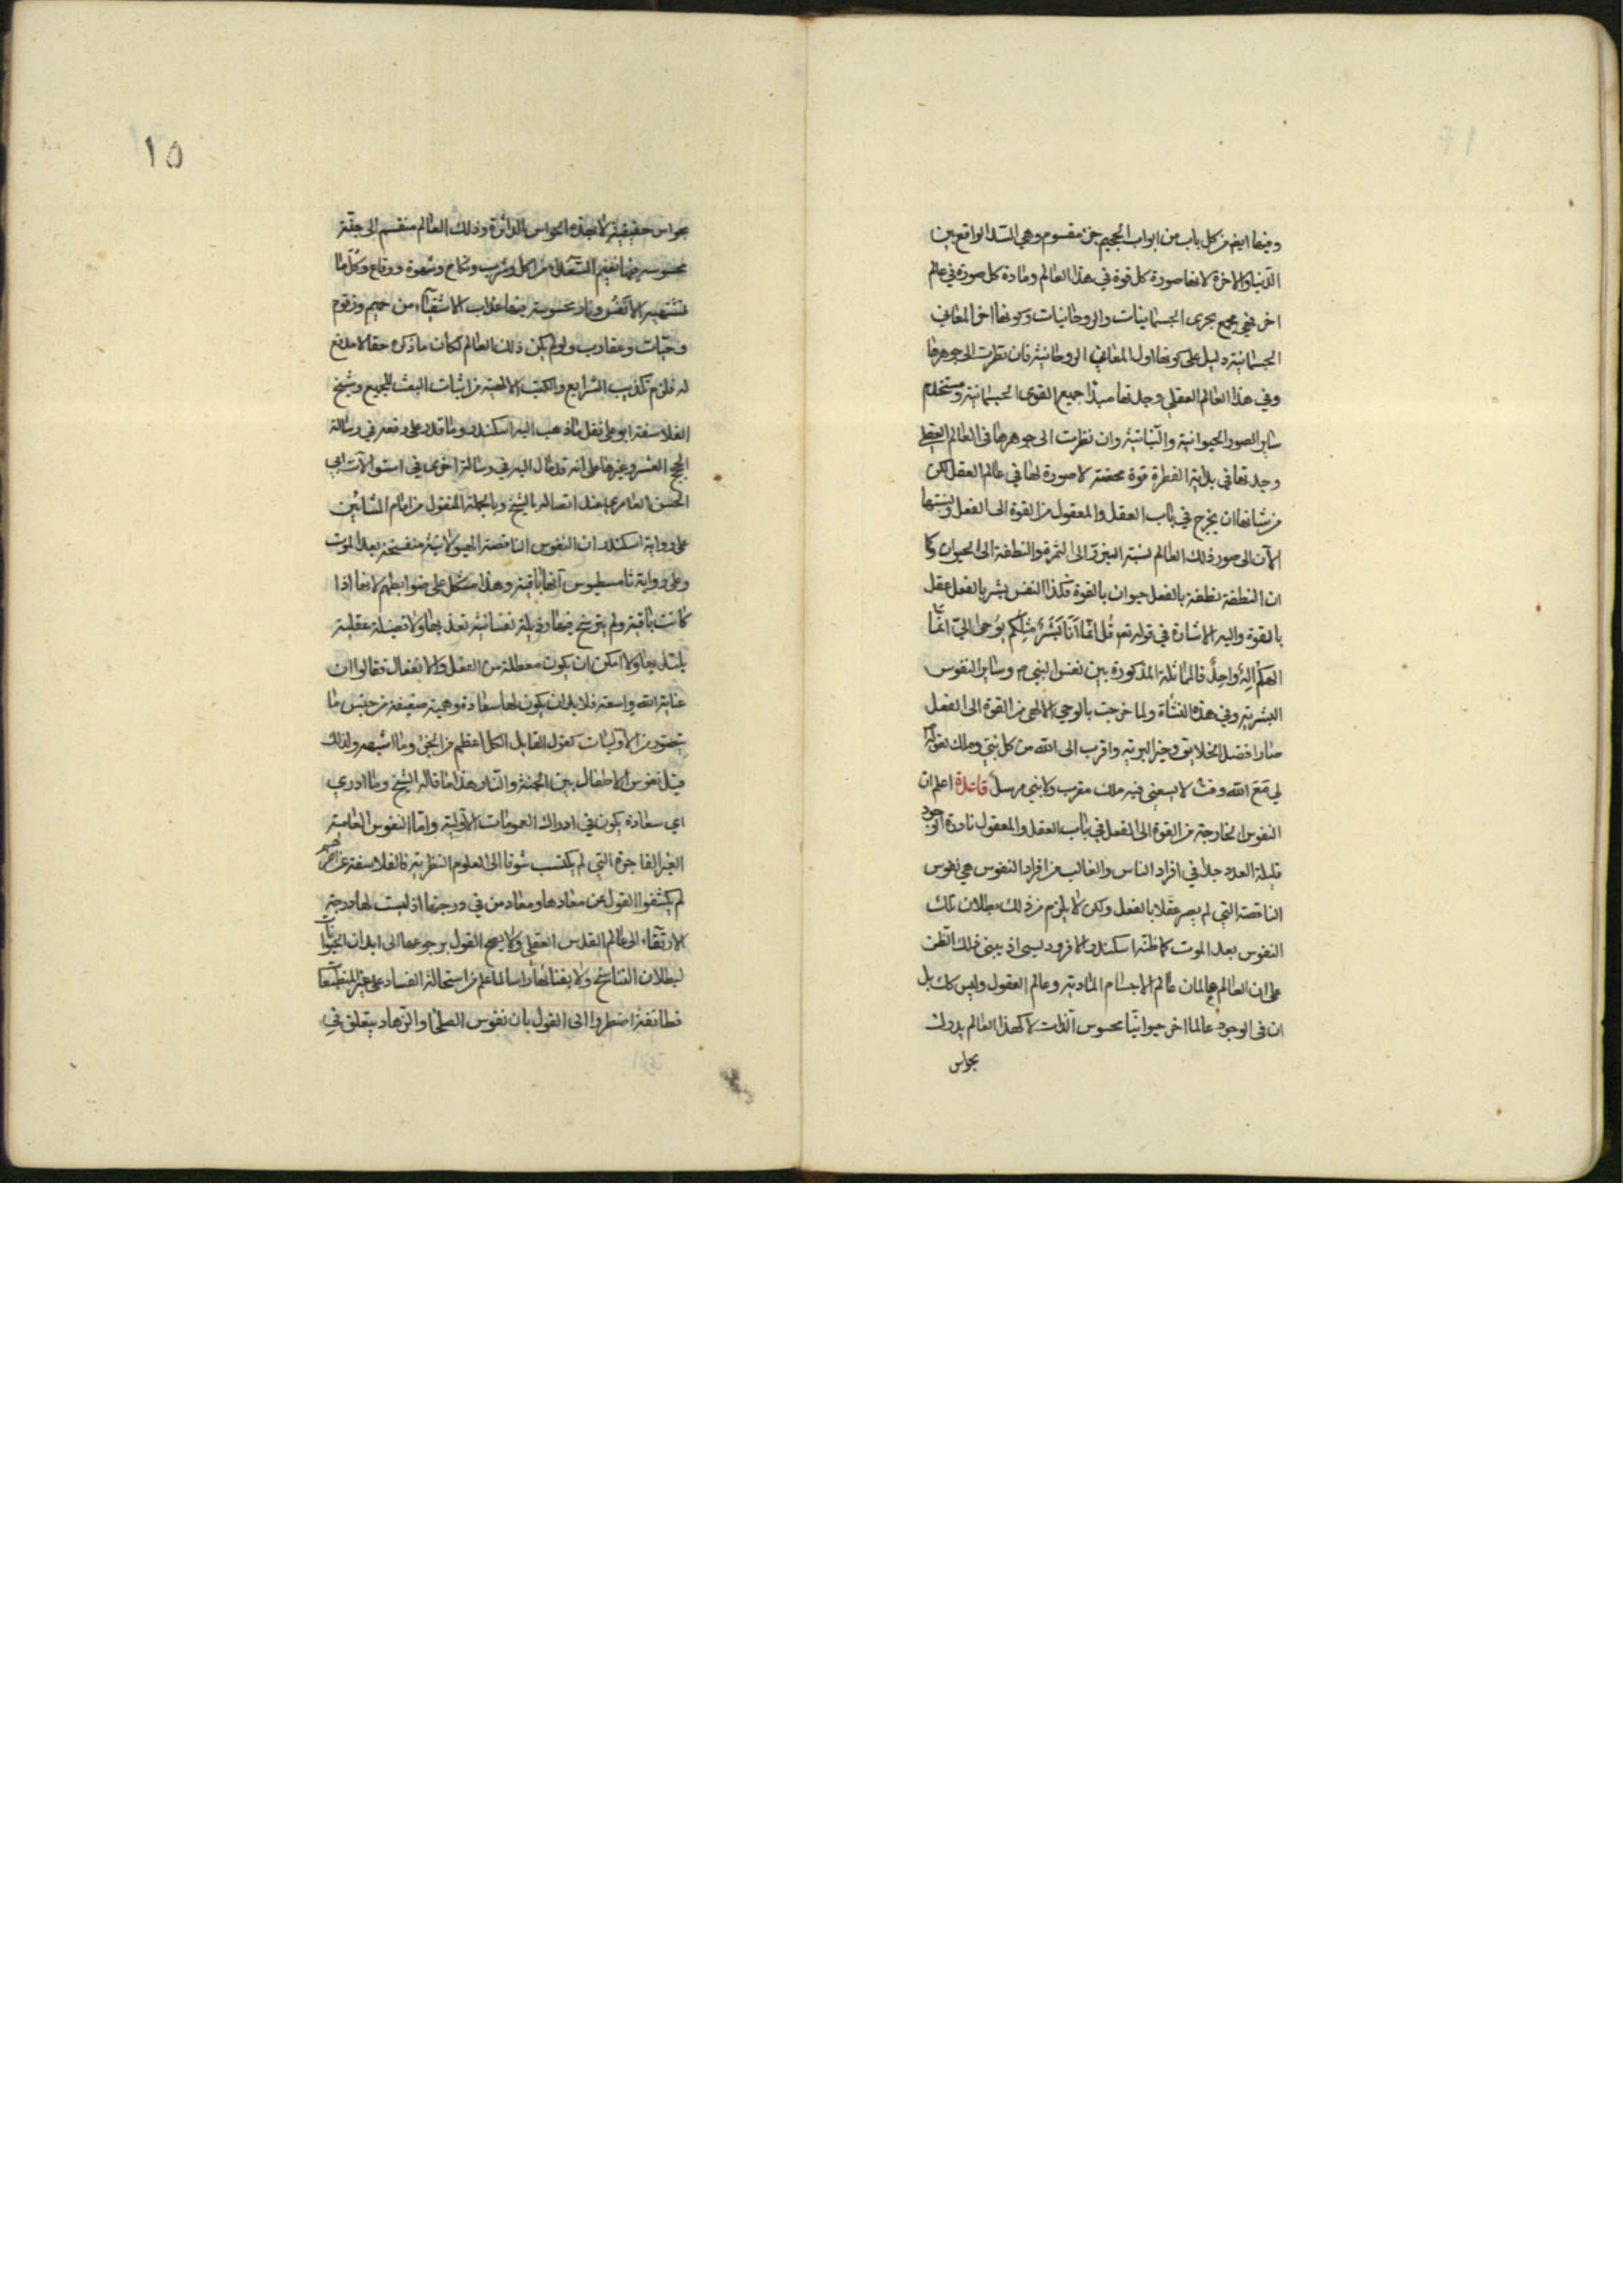 وفيها ايضا من كل باب من ابواب الجحيم جزء مقسوم وهي السد الواقع بين
الدنيا والاخرة لانها صورة كل قوة في هذا العالم ومادة كل صورة في عالم
اخر فهي مجمع بحرى الجسمانيات والروحانيات وكونها اخر المعاني
الجسمانية دليل على كونها اول المعاني الروحانية فان نظرت الى جوهرها
وفي هذا العالم العقلي وجدتها مبدا جميع القوى الجسمانية ومستخدم
ساير الصور الحيوانية والنباتية وان نظرت الى جوهرها فى العالم العقلي
وجدتها في بداية الفطرة قوة محضة لا صورة لها في عالم العقل لكن
من شانها ان يخرج في باب العقل والمعقول من القوة الى الفعل ونسبتها
الآن الى صور ذلك العالم نسبة البزر الى الثمرة والنطفة الى الحيوان وكما
ان النطفة نطفة بالفعل حيوان بالقوة فكذا النفس بشر بالفعل عقل
بالقوة واليه الاشارة في قوله تعم قُل انّما اَنَا بَشَرٌ مِثلُكُم يُوحى اليّ انّما
الهكُم اِلهٌ واحِدٌ فالمماثلة المذكورة بين نفس النبي ص وساير النفوس
البشرية وفي هذه النشأة ولما خرجت بالوحي الالهي من القوة الى الفعل
صار افضل الخلايق وخير البرية واقرب الى الله من كل نبي وملك بقوله
لي مَعَ الله وقت لا يسعني فيه ملك مقرب ولا نبي مرسل قاعدة اعلم ان
النفوس الخارجة من القوة الى الفعل في باب العقل والمعقول نادرة الوجود
قليلة العدد جدا في افراد الناس والغالب من افراد النفوس هي نفوس
الناقصة التي لم يصر عقلا بالفعل ولكن لا يلزم من ذلك بطلان تلك
النفوس بعد الموت كما ظنه اسكندر الافروديسي اذ يبنى ذلك الظن
على ان العالم عالمان عالم الاجسام المادية وعالم العقول وليس كك بل
ان فى الوجود عالما اخر حيوانيّا محسوس الذات لا كهذا العالم يدرك
بحواس
١٥
بحواس حقيقية لا بهذه الحواس الداثرة وذلك العالم منقسم الى جنّة
محسوسة فيها نعيم السعداء من اكل وشرب ونكاح وشهوة ووقاع وكلّ ما
تشتهيه الانفس ونار محسوسة فيها عذاب الاشقياء من حميم وزقوم
وحيّات وعقارب ولو لم يكن ذلك العالم لكان ما ذكره حقا لا مدفع
له فلزم تكذيب الشرايع والكتب الالهية من اثبات البعث للجميع وشيخ
الفلاسفة ابو على نقل ما ذهب اليه اسكندر وما قدر على دفعه في رسالة
الحجج العشر وغيرها على انه قد مال اليه في رسالة اخرى في اسئولآت ابي
الحسن العامري عند اتصاله بالشيخ وبالجملة المنقول من امام المشائين
على رواية اسكندر ان النفوس الناقصة الهيولانية منفسخة بعد الموت
وعلى رواية ثامسطيوس انها باقية وهذا مشكل على ضوابطهم لانها اذا
كانت باقية ولم يترسخ فيها رذيلة نفسانية تعذبها ولا فضيلة عقلية
يلتذ بها ولا امكن ان يكون معطلة من الفعل والانفعال فقالوا ان
عناية الله واسعة فلا بد ان يكون لها سعادة وهمية ضعيفة من جنس ما
يتصور من الاوليات كقول القايل الكل اعظم من الجزء وما اشبهه ولذلك
قيل نفوس الاطفال بين الجنة والنار هذا ما قاله الشيخ وما ادري
اي سعادة يكون في ادراك العمومات الاولية واما النفوس العامية
الغير الفاجرة التي لم يكتسب شوقا الى العلوم النظرية فالفلاسفة عن اخرهم
لم يكشفوا القول عن معادها ومعاد من في درجتها اذ ليست لها درجة
الارتقاء الى عالم القدس العقلى ولا يصح القول برجوعها الى ابدان الحيوانات
لبطلان التناسخ ولا بفنائها راسا لما علم من استحالة الفساد على غير المنطبعات
فطائفة اضطروا الى القول بان نفوس الصلحا والزهاد يتعلق في